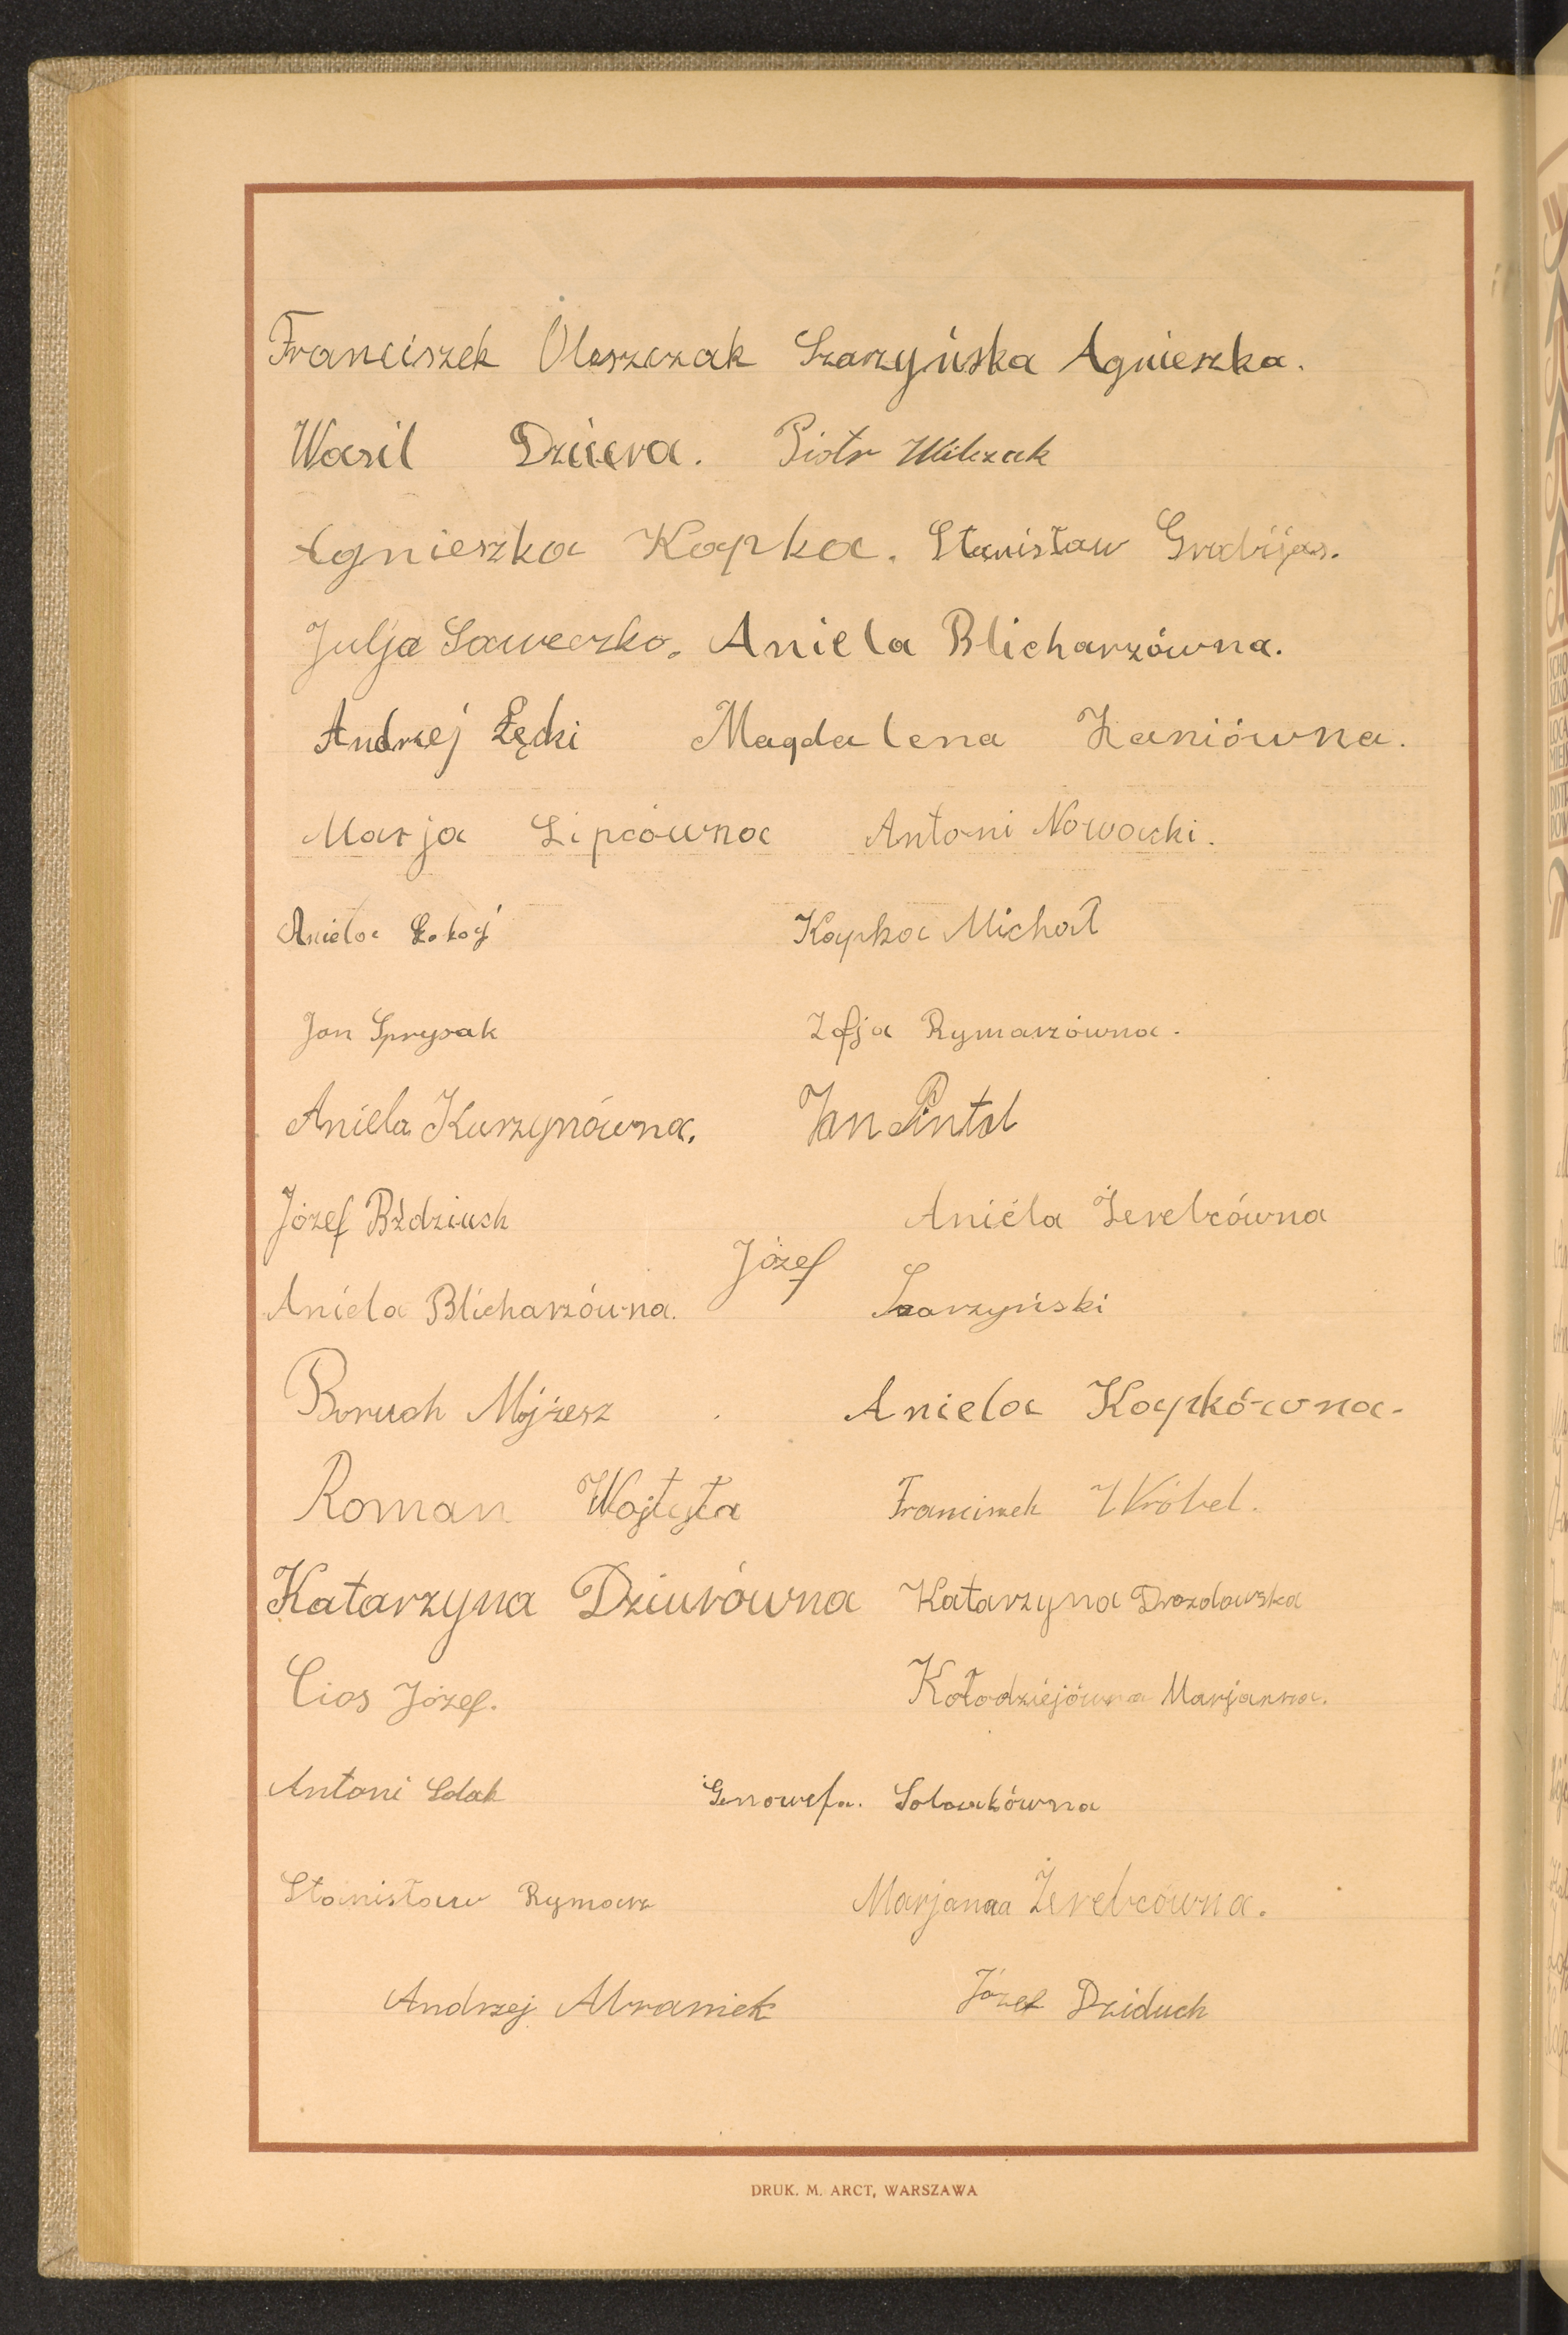 Franciszek Oleszczak Szarzyńska Agnieszka.
Wasil Dziura. Piotr Wilczak
Agnieszka Kapka. Stanisław Grabijas.
Julja Saweczko. Aniela Blicharzówna.
Andrzej Łęcki Magdalena Kaniówna.
Marja Lipcówna Antoni Nowacki.
Aniela Kapka Michał
Jan Sprysak Zofja Rymarzówna.
Aniela Kurzynówna. Jan Pintal
Józef Bździuch Aniela Żerebcówna
Aniela Blicharzówna. Józef Szarzyński
Boruch Mójżesz Aniela Kapkówna.
Roman Wojtyła Franciszek Wróbel.
Katarzyna Dziurówna Katarzyna Drozdowska
Cios Józef. Kołodziejówna Marjanna.
Antoni Solak Genowefa. Solakówna
Stanisław Rymarz Marjanna Żerebcówna.
Andrzej Abramek Józef Dziduch
DRUK. M. ARCT, WARSZAWA